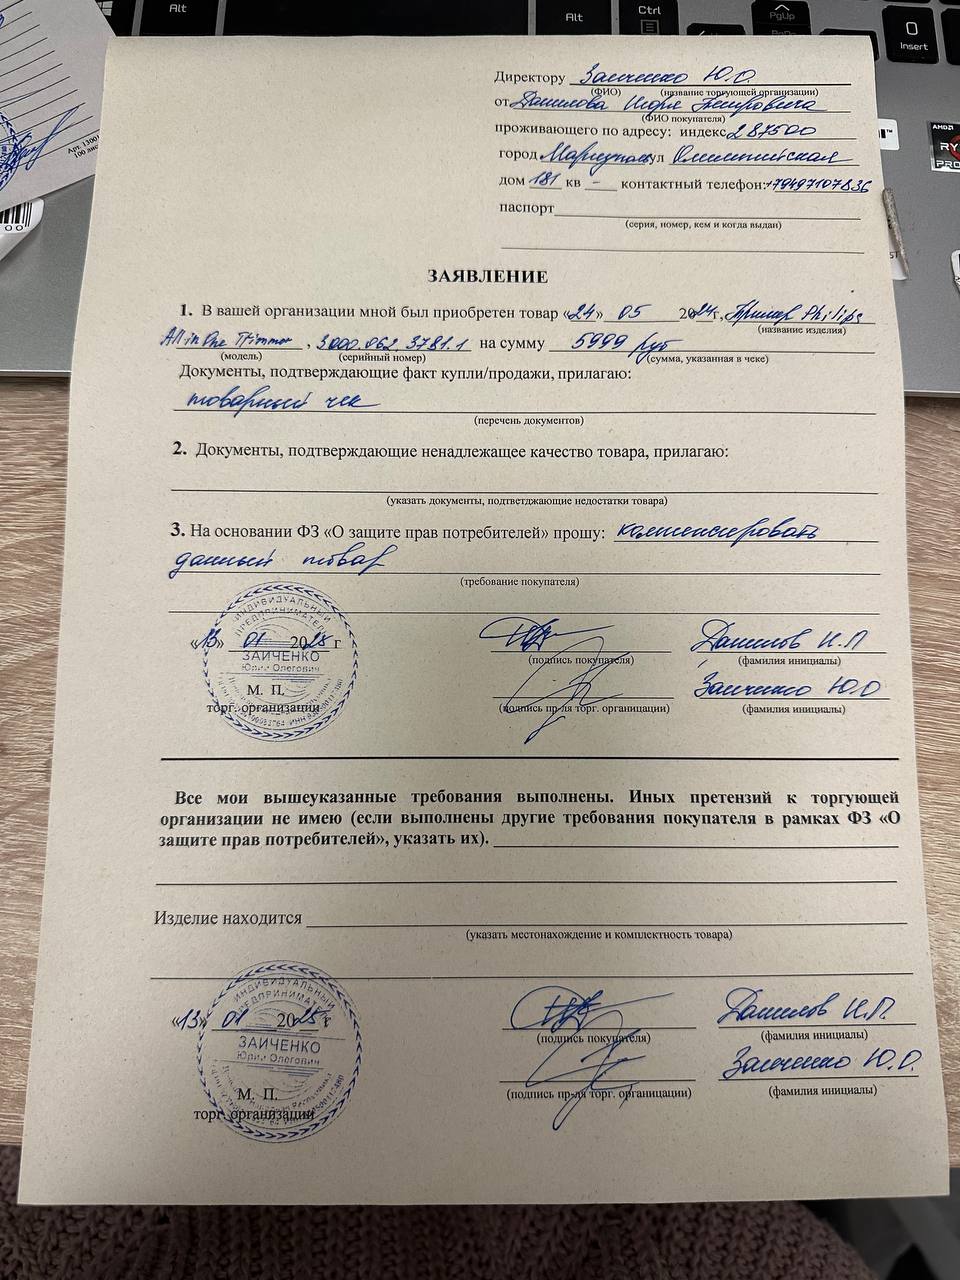 Alt
Alt
Ctrl
PgUp
0
Insert
AMDA
RY
PRO
Арт. 1300
100 лис
00
Директору Заиченко Ю.О.
(ФИО) (название торгующей организации)
от Данилова Игоря Петровича
(ФИО покупателя)
проживающего по адресу: индекс 287500
город Мариуполь ул Олимпийская
дом 181 кв – контактный телефон: +79497107836
паспорт
(серия, номер, кем и когда выдан)
ЗАЯВЛЕНИЕ
1. В вашей организации мной был приобретен товар «24» 05 2024г, Триммер Philips
(название изделия)
All in One Trimmer , 3000.062.3781.1 на сумму 5999 руб
(модель) (серийный номер) (сумма, указанная в чеке)
Документы, подтверждающие факт купли/продажи, прилагаю:
товарный чек
(перечень документов)
2. Документы, подтверждающие ненадлежащее качество товара, прилагаю:
(указать документы, подтветджающие недостатки товара)
3. На основании ФЗ «О защите прав потребителей» прошу: компенсировать
данный товар
(требование покупателя)
ИНДИВИДУАЛЬНЫЙ
ПРЕДПРИНИМАТЕЛЬ
«13» 01 2025 г Данилов И.П
ЗАИЧЕНКО
Юрий Олегович
(подпись покупателя) (фамилия инициалы)
М. П. Заиченко Ю.О
торг. организации (подпись пр-ля торг. органицации) (фамилия инициалы)
Все мои вышеуказанные требования выполнены. Иных претензий к торгующей
организации не имею (если выполнены другие требования покупателя в рамках ФЗ «О
защите прав потребителей», указать их).
Изделие находится
(указать местонахождение и комплектность товара)
ИНДИВИДУАЛЬНЫЙ
ПРЕДПРИНИМАТЕЛЬ
«13» 01 2025 г Данилов И.П.
(подпись покупателя) (фамилия инициалы)
ЗАИЧЕНКО
Юрий Олегович
Заиченко Ю.О.
М. П.
(подпись пр-ля торг. органицации) (фамилия инициалы)
торг. организации